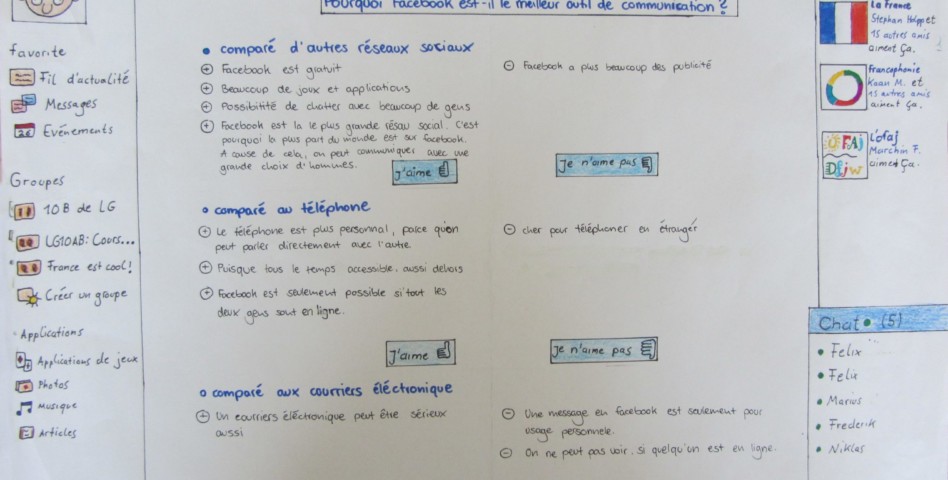 Pourquoi Facebook est-il le meilleur outil de communication?
favorite
Fil d'actualité
Messages
Evénements
Groupes
10 B de LG
LG10AB: Cours...
France est cool!
Créer un groupe
Applications
Applications de jeux
Photos
Musique
Articles
comparé d'autres réseaux sociaux
+ Facebook est gratuit
+ Beaucoup de joux et applications
+ Possibitité de chatter avec beaucoup de gens
+ Facebook est la le plus grande résau social. C'est
pourquoi la plus part du monde est sur facebook.
A cause de cela, on peut communiquer avec une
grande choix d'hommes.
J'aime
- Facebook a plus beaucoup des publicité
Je n'aime pas
comparé au téléphone
+ Le féléphone est plus personnal, parce qu'on
peut parler directement avec l'autre
+ Puisque tous le temps accessible. aussi dehors
+ Facebook est seulement possible si tout les
deux gens sont en ligne.
J'aime
- cher pour téléphoner en étranger
Je n'aime pas
comparé aux courriers éléctronique
+ Un courriers éléctronique peut être sérieux
aussi
- Une message en facebook est seulement pour
usage personnele.
- On ne peut pas voir, si quelqu'un est en ligne.
La France
Stephan et
15 autres amis
aiment ça.
Francophonie
Kaan M. et
15 autres amis
aiment ça.
OFAJ
DFJW
L'ofaj
Marchin F.
aiment ça.
Chat (5)
Felix
Felix
Marius
Frederik
Niklas